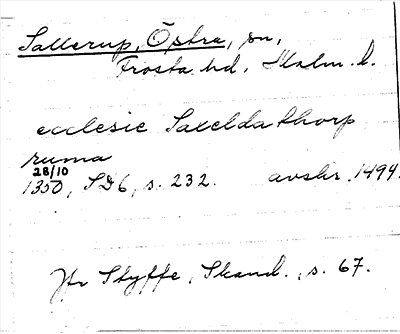 Sallerup, Östra, sn,
Frosta hd, Malm. l.
ecclesie Saxeldathorp
ruma
28/10
1350, SD6, s. 232. avskr. 1494.
Jfr Styffe, Skand., s. 67.